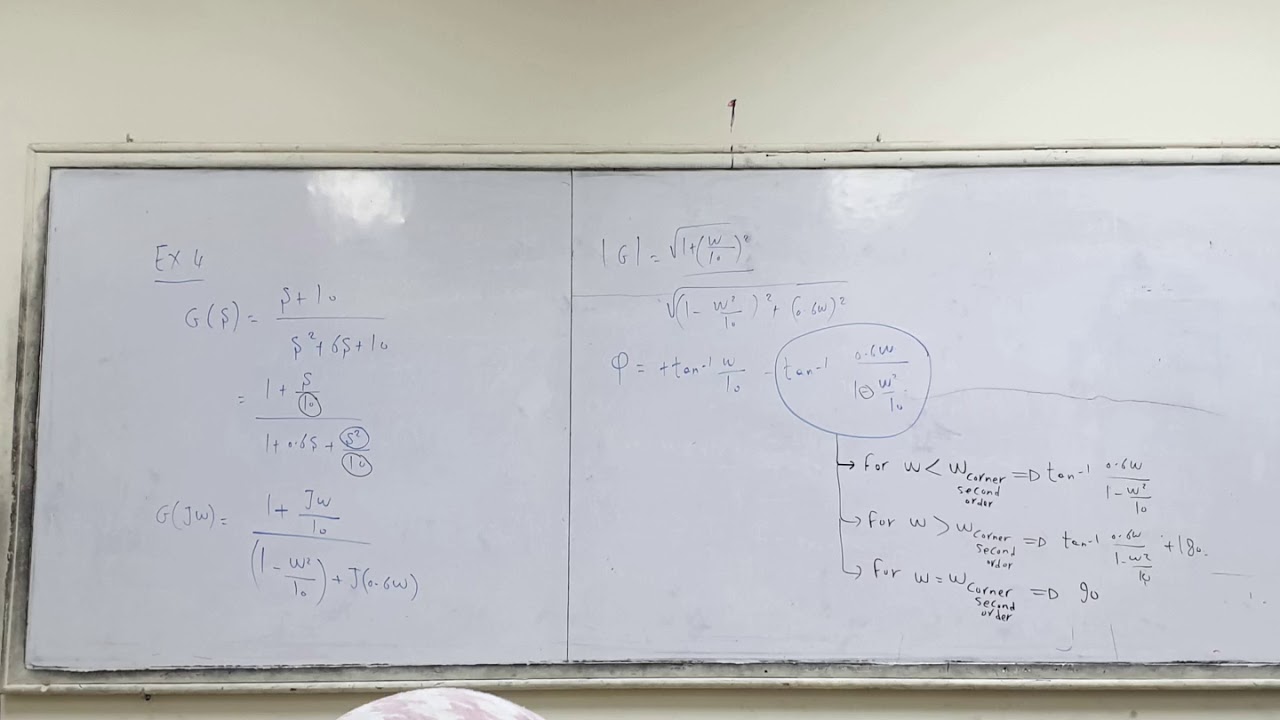 EX 4
G(s) = s+10 / s²+6s+10
= 1+ s/10 / 1+0.6s+ s²/10
G(Jw) = 1+ Jw/10 / (1 - w²/10) + J(0.6w)
|G| = √1+(w/10)² / √(1 - w²/10)² + (0.6w)²
φ = +tan⁻¹ w/10 - tan⁻¹ 0.6w / 1 - w²/10
→ for w < w corner second order => tan⁻¹ 0.6w / 1 - w²/10
→ for w > w corner second order => tan⁻¹ 0.6w / 1 - w²/10 +180
→ for w = w corner second order => 90